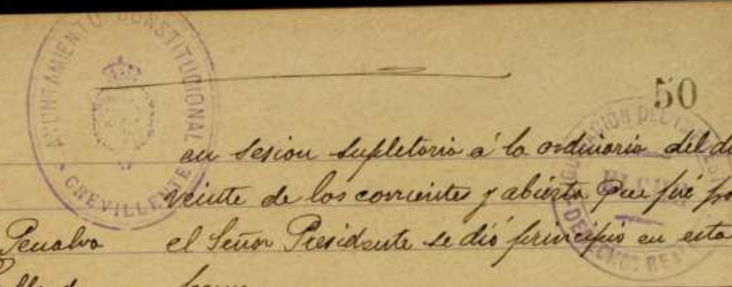 AYUNTAMIENTO CONSTITUCIONAL
CREVILLENTE
50
en sesion supletoria á la ordinaria del
veinte de los corrientes y abierta que fué
Penalva el Señor Presidente se dió principio en esta
forma